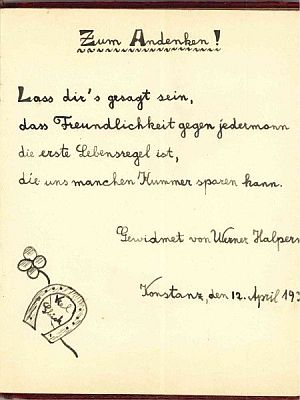 Zum Andenken!
Lass dir's gesagt sein,
dass Freundlichkeit gegen jedermann
die erste Lebensregel ist,
die uns manchen Kummer sparen kann.
Gewidmet von Werner Halpern
Konstanz, den 12. April 193
Viel
Glück